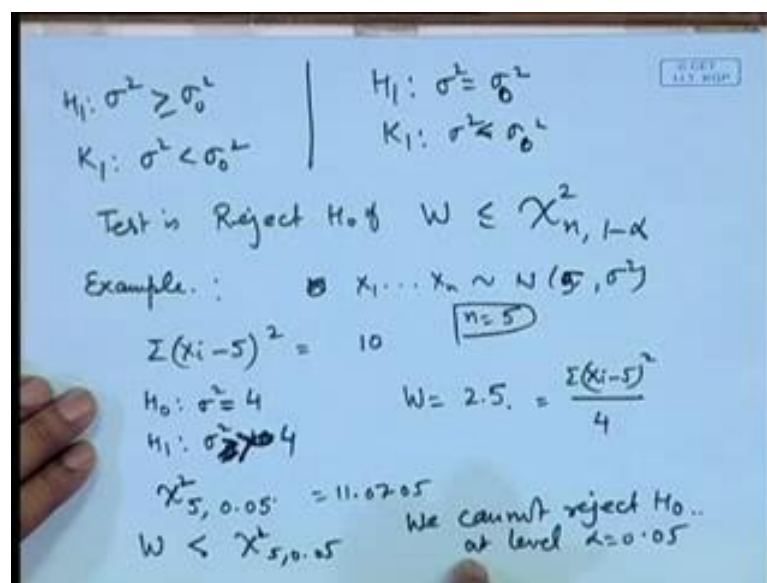 H₁: σ² ≥ σ₀²
K₁: σ² < σ₀²
H₁: σ² = σ₀²
K₁: σ² < σ₀²
Test is Reject H₀ if W ≤ χ²ₙ, ₁₋α
Example.: x₁ ... xₙ ~ N(5, σ²)
Σ(xi - 5)² = 10
n = 5
H₀: σ² = 4
W = 2.5. = Σ(xi-5)² / 4
H₁: σ² > 4
χ²5, 0.05 = 11.0705
W < χ²5, 0.05
We cannot reject H₀..
at level α = 0.05
I.I.T. KGP